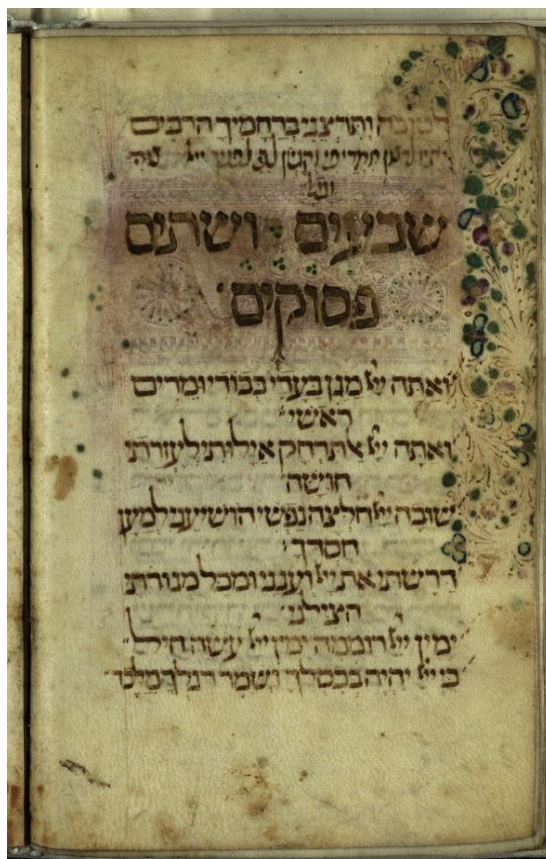 לטובה ותרצני ברחמיך הרבים
יהיו לרצון אמרי פי והגיון לבי לפניך ייי
שבעים ושתים
פסוקים׳
ואתה ייי מגן בעדי כבודי ומרים
ראשי׳
ואתה ייי אל תרחק אילותי לעזרתי
חושה׳
שובה ייי חלצה נפשי הושיעני למען
חסדך׳
דרשתי את ייי וענני ומכל מגורתי
הצילני׳
ימין ייי רוממה ימין ייי עשה חיל״
כי ייי יהיה בכסלך ושמר רגלך מלכד